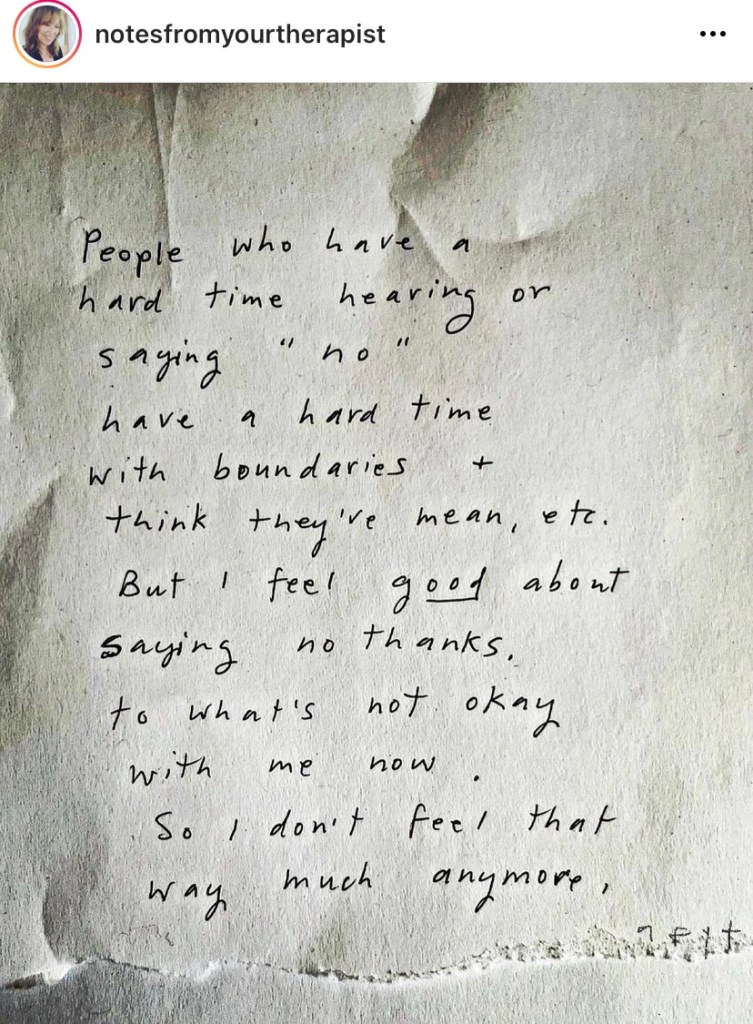 notesfromyourtherapist
People who have a
hard time hearing or
saying "no"
have a hard time
with boundaries +
think they're mean, etc.
But I feel good about
saying no thanks,
to what's not okay
with me now.
So I don't feel that
way much anymore,